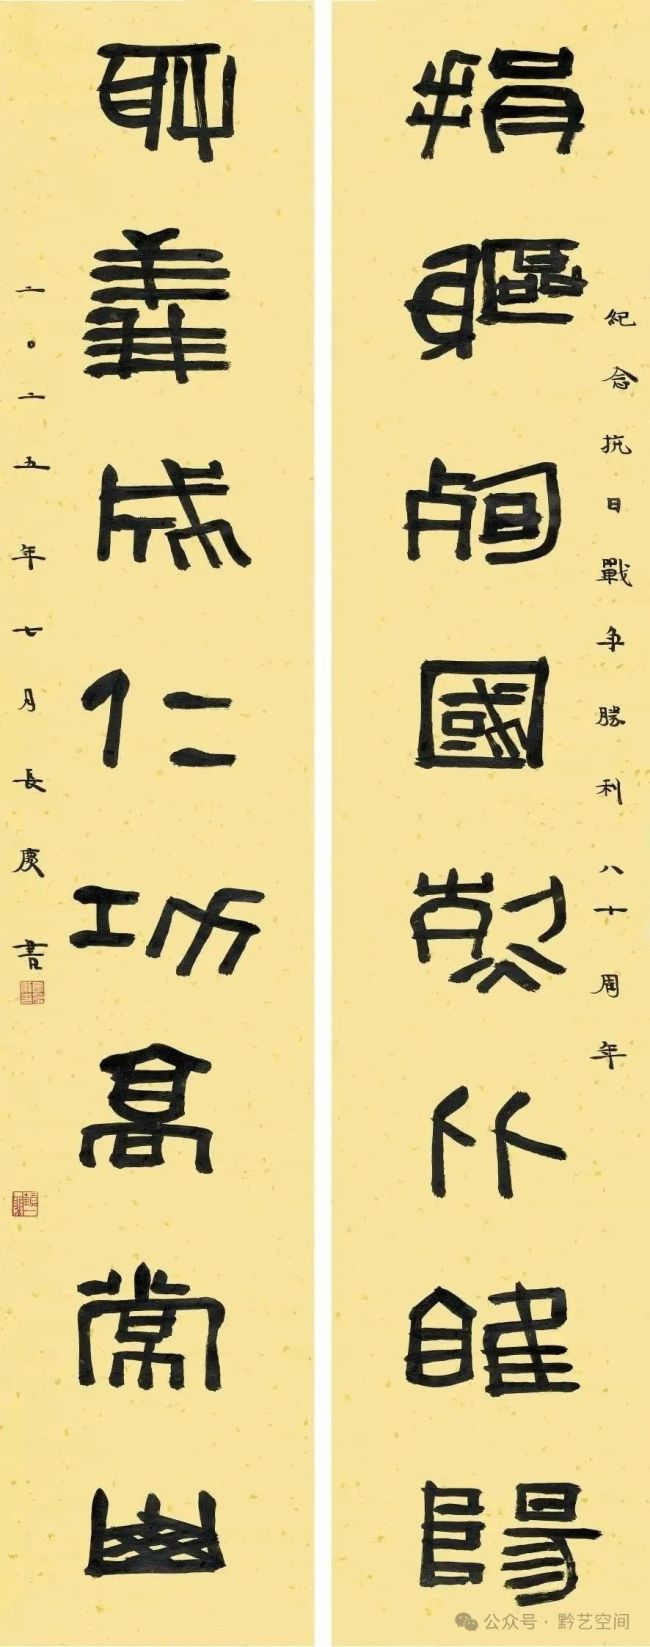 紀念抗日戰争勝利八十周年
捐軀殉國比睢陽
取義成仁功高常山
二〇二五年七月長慶書
公众号·黔艺空间